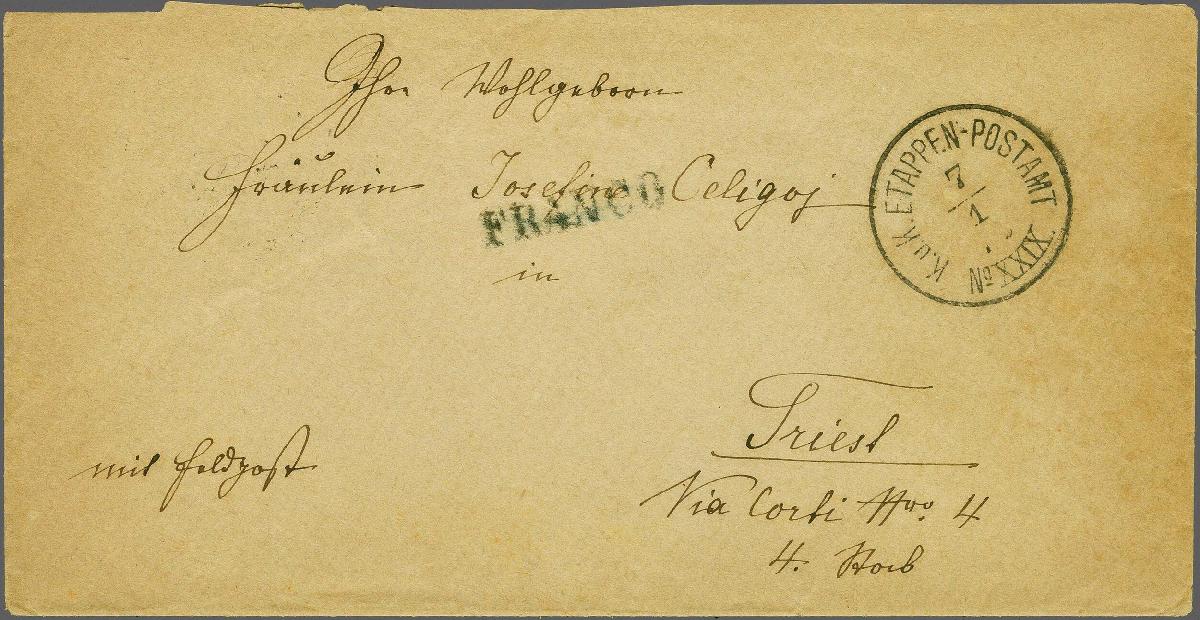 Ihre Wohlgeborn
Fräulein Josefine Celigoj
FRANCO
K.u.K. ETAPPEN-POSTAMT
7/1
No XXXIX.
in
Triest
Via Corti Nro. 4
4. Stock
mit Feldpost